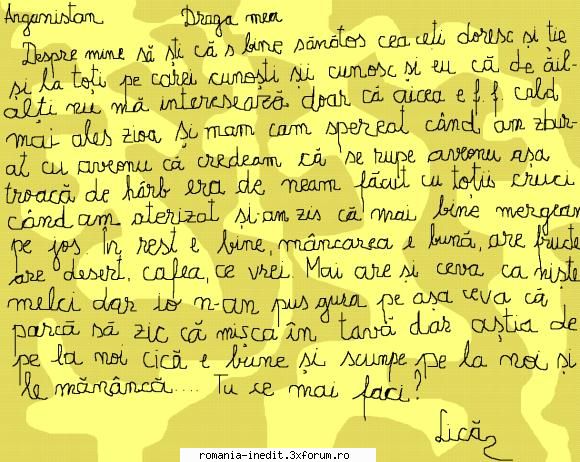 Anganistan Draga mea
Despre mine să ști că s bine sănătos ceea ce ți doresc și ție
și la toți pe carei cunoști șii cunosc și eu că de ăil-
alți nu mă interesează doar că aicea e f. f. cald
mai ales zioa și mam cam spereat când am zbur-
at cu aveonu că credeam că se rupe aveonu așa
troacă de hârb era de neam făcut cu toții cruci
când am aterizat și-an zis că mai bine mergean
pe jos În rest e bine, mâncarea e bună, are fructe
are desert, cafea, ce vrei. Mai are și ceva ca niște
melci dar io n-an pus gura pe așa ceva că
parcă să zic că mișca în tavă dar aștia de
pe la noi cică e bune și scunpe pe la noi și
le mănâncă.... Tu ce mai faci?
Lică
romania-inedit.3xforum.ro